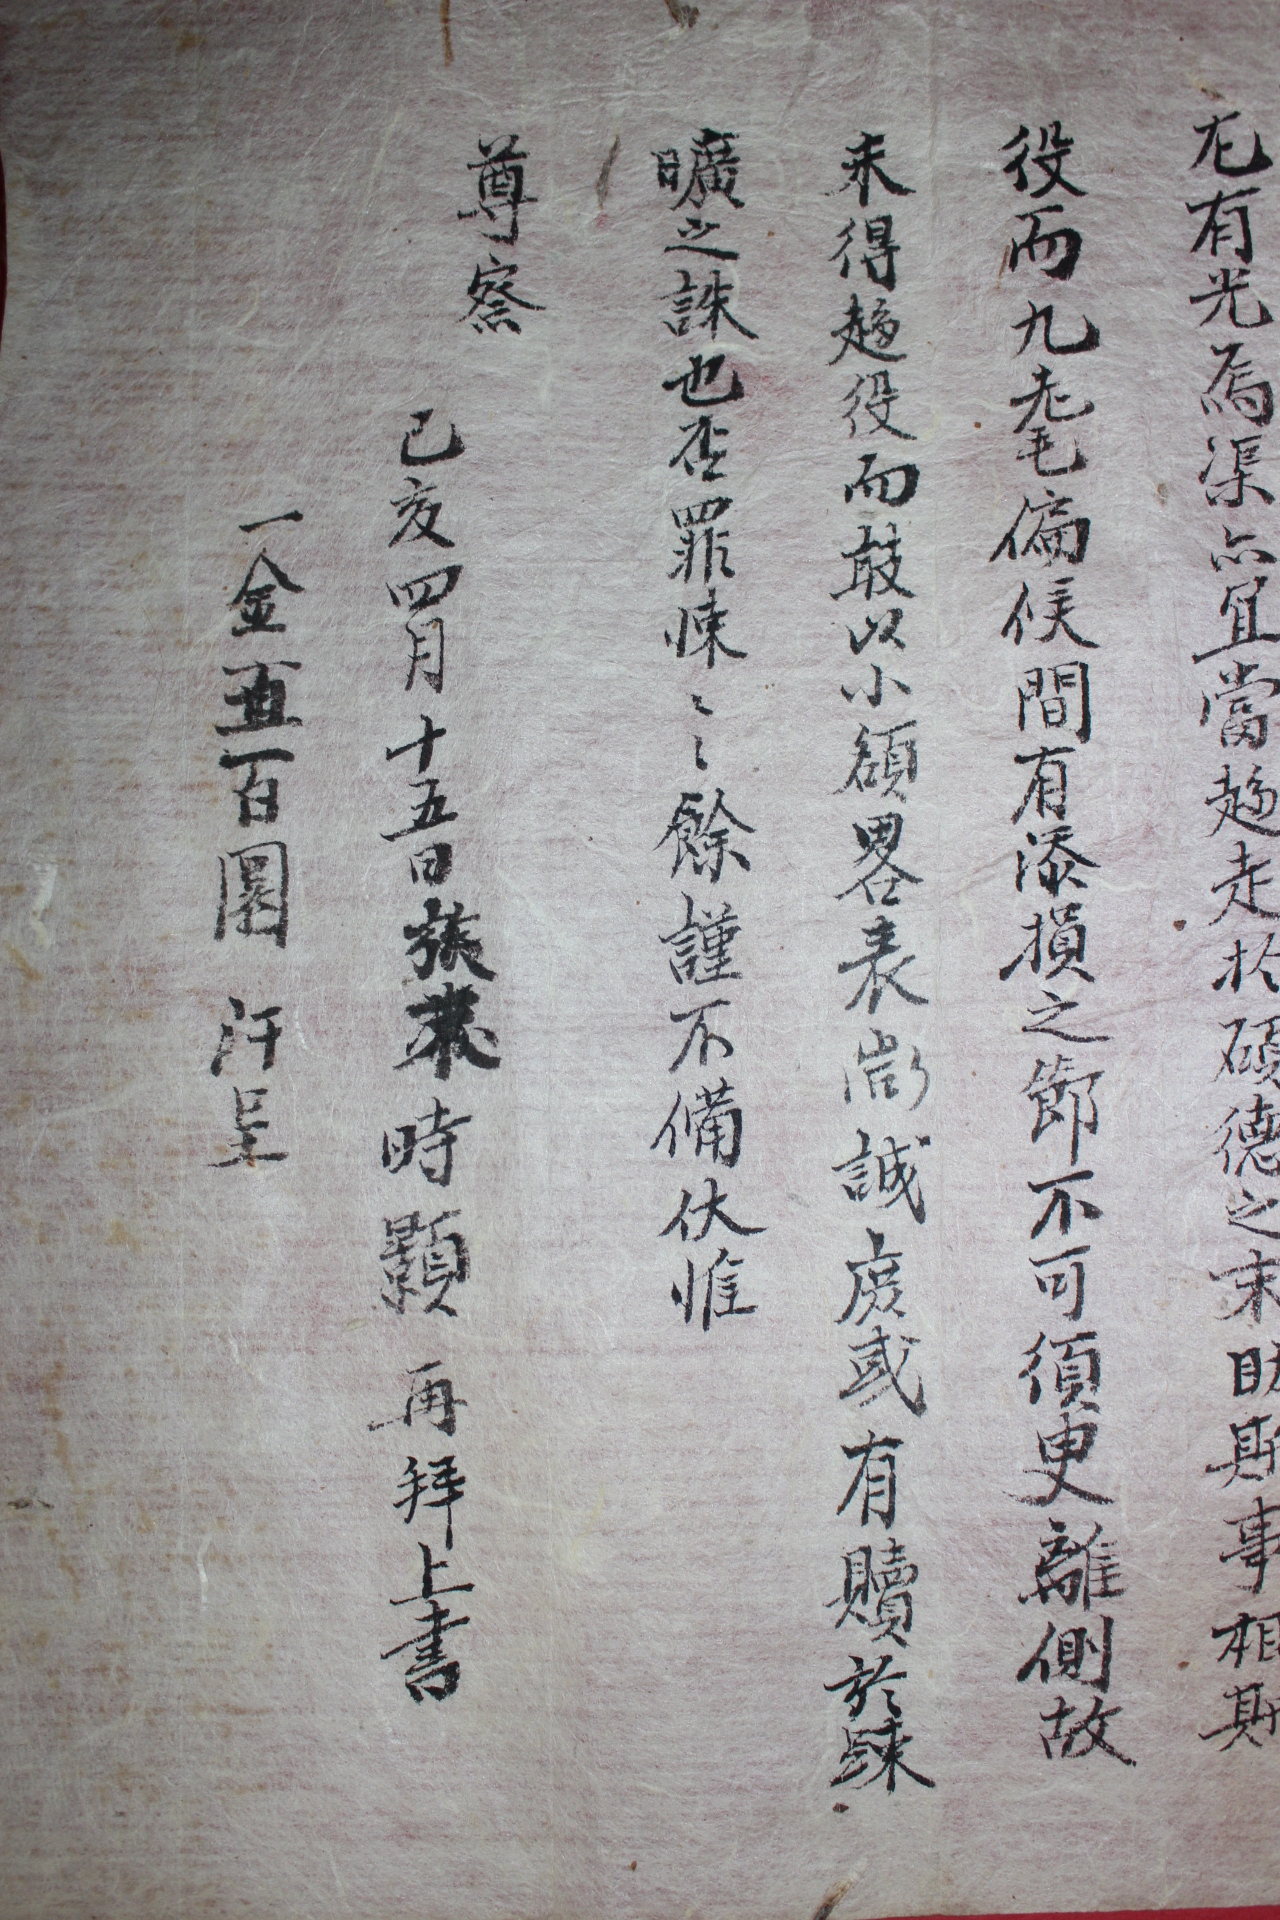 尤有光焉渠亦宜當趨走於碩德之末助斯事相斯
役而九耄偏候間有添損之節不可須臾離側故
未得趨役而敢以小額畧表誠庶或有贖於踈
曠之誅也否罪悚〻〻餘謹不備伏惟
尊察
己亥四月十五日張來時顯再拜上書
一金五百圜 汗呈